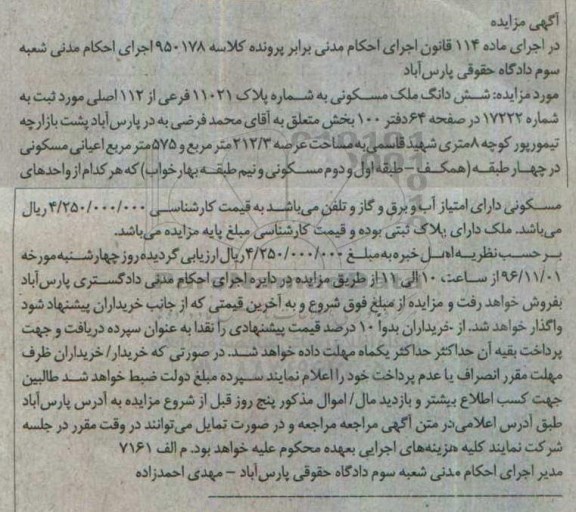 آگهی مزایده
در اجرای ماده ۱۱۴ قانون اجرای احکام مدنی برابر پرونده کلاسه ۹۵۰۱۷۸ اجرای احکام مدنی شعبه
سوم دادگاه حقوقی پارس‌آباد
مورد مزایده: شش دانگ ملک مسکونی به شماره پلاک ۱۱۰۲۱ فرعی از ۱۱۲ اصلی مورد ثبت به
شماره ۱۷۲۲۲ در صفحه ۶۴ دفتر ۱۰۰ بخش متعلق به آقای محمد فرضی به در پارس‌آباد پشت بازارچه
تیمورپور کوچه ۸ متری شهید قاسمی به مساحت عرصه ۲۱۲/۳ متر مربع و ۵۷۵ متر مربع اعیانی مسکونی
در چهار طبقه (همکف – طبقه اول و دوم مسکونی و نیم طبقه بهارخواب) که هر کدام از واحدهای
مسکونی دارای امتیاز آب و برق و گاز و تلفن می‌باشد به قیمت کارشناسی ۴/۲۵۰/۰۰۰/۰۰۰ ریال
می‌باشد. ملک دارای پلاک ثبتی بوده و قیمت کارشناسی مبلغ پایه مزایده می‌باشد.
بر حسب نظریه اهل خبره به مبلغ ۴/۲۵۰/۰۰۰/۰۰۰ ریال ارزیابی گردیده روز چهارشنبه مورخه
۹۶/۱۱/۰۱ از ساعت ۱۰ الی ۱۱ از طریق مزایده در دایره اجرای احکام مدنی دادگستری پارس‌آباد
بفروش خواهد رفت و مزایده از مبلغ فوق شروع و به آخرین قیمتی که از جانب خریداران پیشنهاد شود
واگذار خواهد شد. از خریداران بدوا ۱۰ درصد قیمت پیشنهادی را نقدا به عنوان سپرده دریافت و جهت
پرداخت بقیه آن حداکثر حداکثر یکماه مهلت داده خواهد شد. در صورتی که خریدار/ خریداران ظرف
مهلت مقرر انصراف یا عدم پرداخت خود را اعلام نمایند سپرده مبلغ دولت ضبط خواهد شد طالبین
جهت کسب اطلاع بیشتر و بازدید مال/ اموال مذکور پنج روز قبل از شروع مزایده به آدرس پارس‌آباد
طبق آدرس اعلامی در متن آگهی مراجعه مراجعه و در صورت تمایل می‌توانند در وقت مقرر در جلسه
شرکت نمایند کلیه هزینه‌های اجرایی بعهده محکوم علیه خواهد بود. م الف ۷۱۶۱
مدیر اجرای احکام مدنی شعبه سوم دادگاه حقوقی پارس‌آباد – مهدی احمدزاده